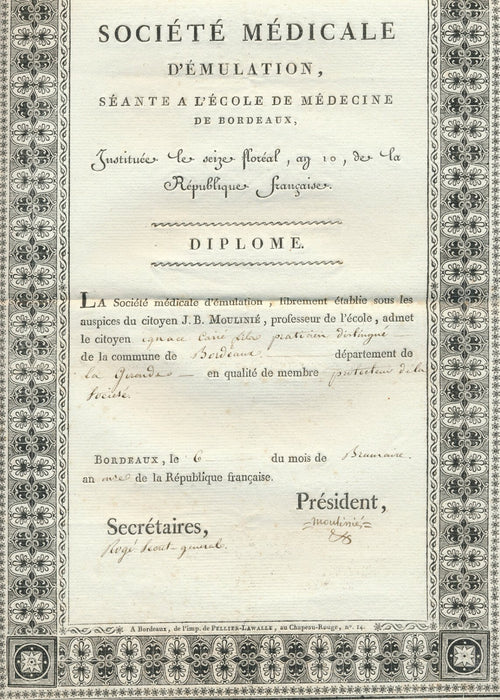 SOCIÉTÉ MÉDICALE
D'ÉMULATION,
SÉANTE A L'ÉCOLE DE MÉDECINE
DE BORDEAUX,
Instituée le seize floréal, an 10, de la
République française.
DIPLOME.
LA Société médicale d'émulation, librement établie sous les
auspices du citoyen J. B. MOULINIÉ, professeur de l'école, admet
le citoyen ignace fils praticien distingué
de la commune de Bordeaux département de
la Gironde en qualité de membre protecteur de la
société.
BORDEAUX, le 6 du mois de Brumaire
an onze de la République française.
Président,
moulinié
Secrétaires,
Rogé general.
A Bordeaux, de l'imp. de PELLIER-LAWALLE, au Chapeau-Rouge, n°. 14.